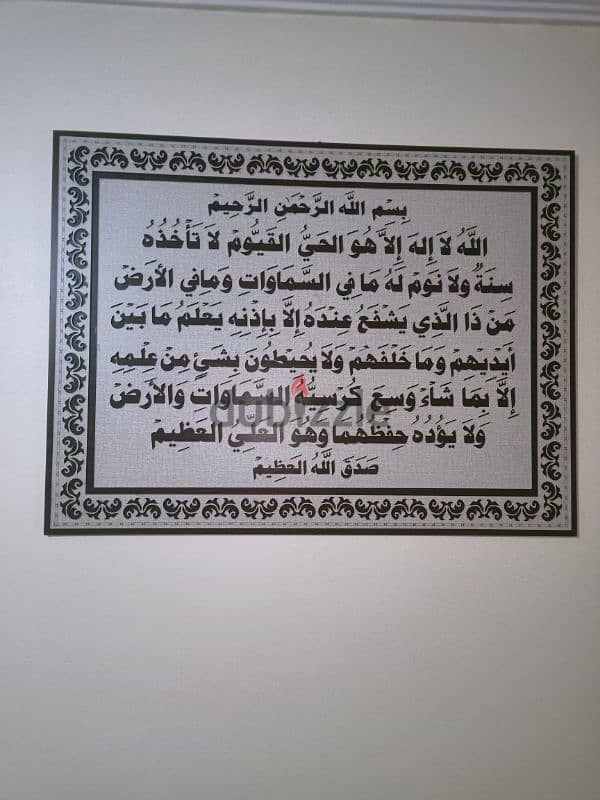 بِسْمِ اللَّهِ الرَّحْمَٰنِ الرَّحِيمْ
اللَّهُ لَا إِلهَ إِلَّا هُوَ الحَيُّ القَيُّومْ لَا تَأْخُذُهُ
سِنَةٌ وَلَا نَوْمْ لَهُ مَا فِي السَّمَاوَاتِ وَمَافِي الأَرَضْ
مَنْ ذَا الَّذِي يَشْفَعُ عِنْدَهُ إِلَّا بِإِذْنِه يَعْلَمُ مَا بَيْنَ
أَيْدِيهِمْ وَمَا خَلْفَهُمْ وَلَا يُحِيْطُونَ بِشَيْ مِنْ عِلْمِهِ
إِلَّا بِمَا شَاءَ وَسِعَ كُرْسِيُّهُ السَّمَاوَاتَ وَالأَرَضْ
dubizzle
وَلَا يَؤُدُهُ حِفِظُهُمَا وَهُوَ العَلِّيُ العَظِيمْ
صَدَقَ اللَّهُ العَظِيمْ